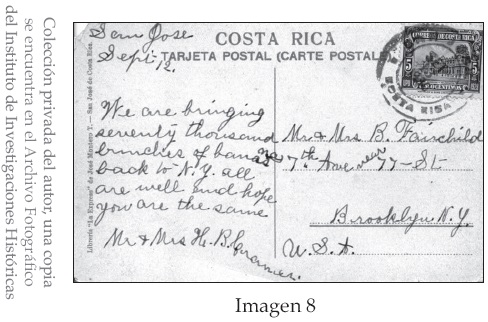 Colección privada del autor, una copia
se encuentra en el Archivo Fotográfico
del Instituto de Investigaciones Históricas
COSTA RICA
TARJETA POSTAL (CARTE POSTALE)
San Jose
Sept. 12.
We are bringing
seventy thousand
bunches of bananas
back to N.Y. all
are well and hope
you are the same
Mr & Mrs H. B. Cramer.
Mr & Mrs B. Fairchild
7th Ave near 77 - St
Brooklyn N.Y.
U.S.A.
Librería "La Express" de José Montero T. — San José de Costa Rica.
CORREOS DE COSTA RICA
5
5
CENTIMOS
COSTA RICA
Imagen 8